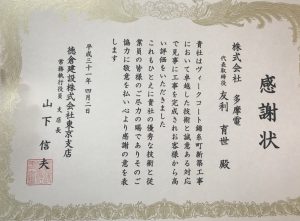 感謝状
株式会社 多摩電
代表取締役 友利 育世 殿
貴社はヴィークコート錦糸町新築工事
において卓越した技術と誠意ある対応
で見事に工事を完成されお客様から高
い評価をいただきました
これもひとえに貴社の優秀な技術と従
業員の皆様のご尽力の賜でありそのご
協力に敬意を払い心より感謝の意を表
します
平成三十一年 四月二日
徳倉建設株式会社東京支店
常務執行役員 支店長
山下 信夫